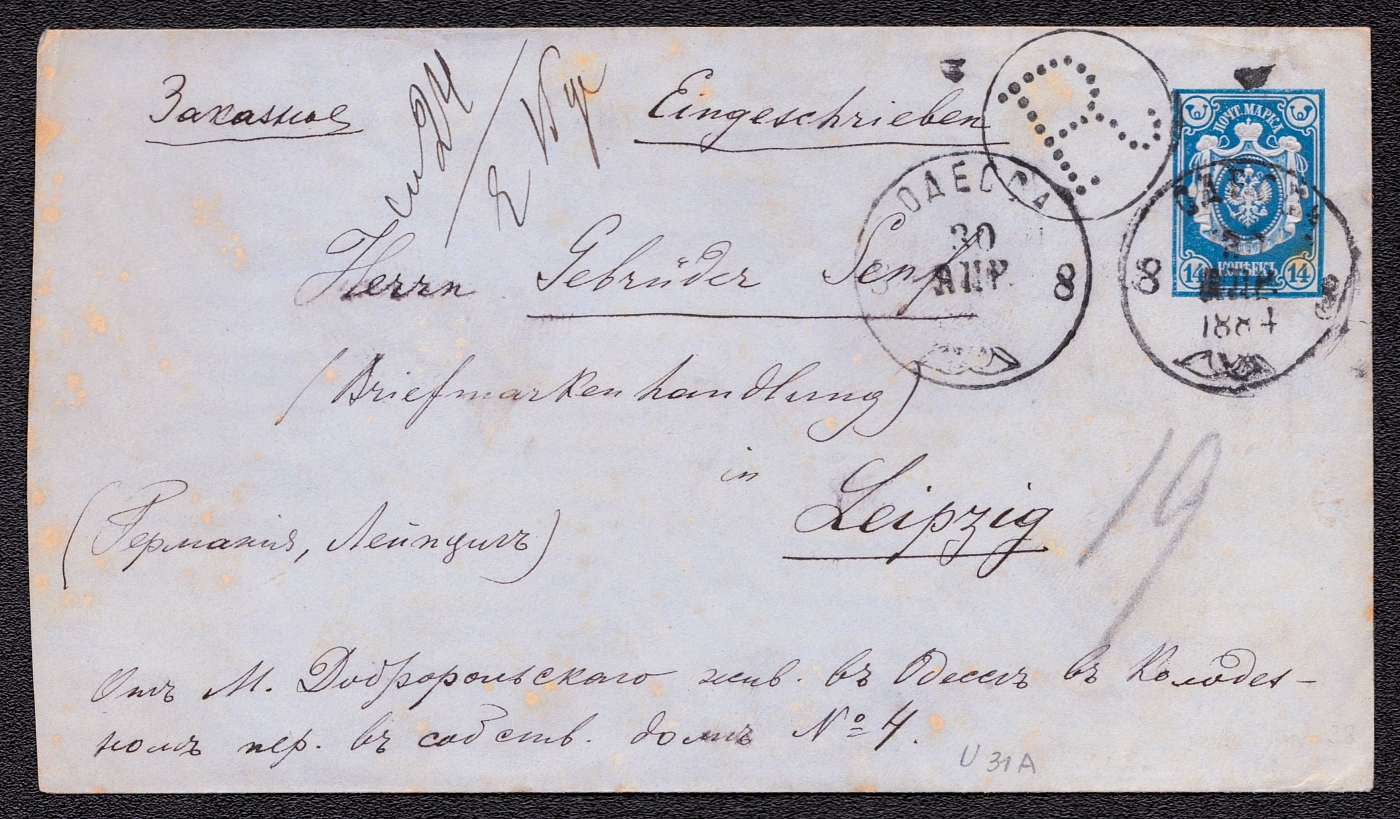 Заказное
Eingeschrieben
R
ПОЧТ. МАРКА
14 КОПѢЕКЪ 14
ОДЕССА
30
АПР.
8
ОДЕССА
30
АПР.
1884
8
8
Herrn Gebrüder Senf
(Briefmarkenhandlung)
in
Leipzig
19
(Германія, Лейпцигъ)
Отъ М. жив. въ Одессѣ въ Колодез-
номъ пер. въ собств. домѣ № 4.
U 31A
28